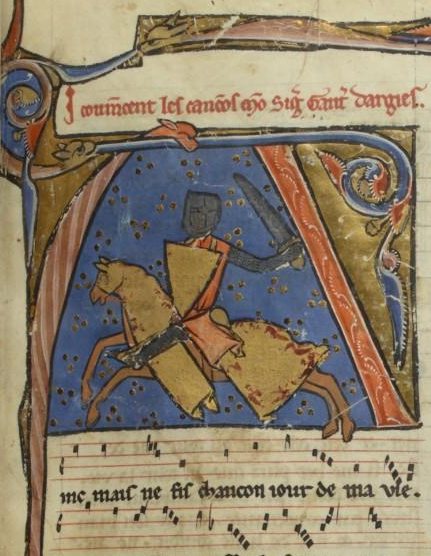 I coumencent les cancos mo Sigr Gautr dargies.
inc mais ne fis chancon iour de ma vie.